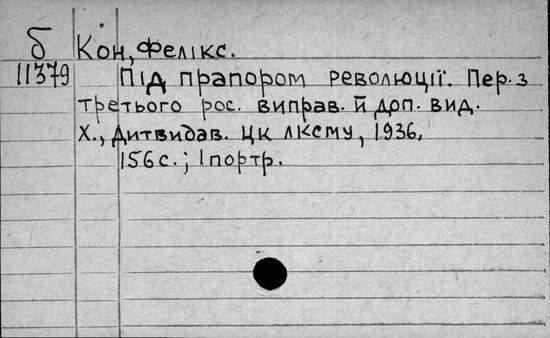 б Кон, Фелікс.
11379 Під прапором революції. Пер. з
третього рос. виправ. й доп. вид.
Х., Дитвидав. ЦК ЛКСМУ, 1936.
156 с.; 1 портр.